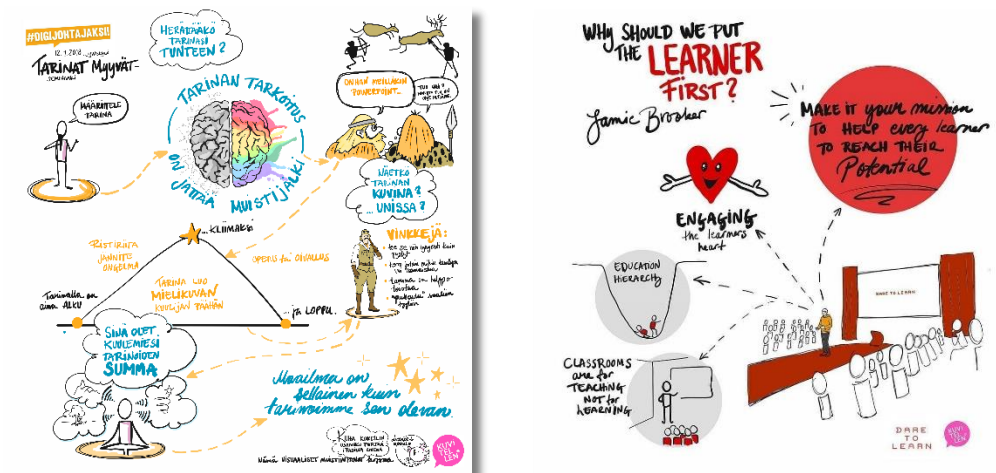 #DIGIJOHTAJAKSI!
12.9.2018
TARINAT MYYVÄT-
HERÄTTÄÄKÖ
TARINASI
TUNTEEN?
MÄÄRITTELE
TARINA
TARINAN TARKOITUS
ON JÄTTÄÄ
MUISTIJÄLKI
ONHAN MEILLÄKIN
POWERPOINT...
NÄETKÖ
TARINAN
KUVINA?
...UNISSA?
...KLIIMAKSI
RISTIRIITA
JÄNNITE
ONGELMA
OPETUS tai OIVALLUS
TARINA LUO
MIELIKUVAN
KUULIJAN PÄÄHÄN
Tarinalla on
aina ALKU
...ja LOPPU.
VINKKEJÄ:
SINÄ OLET
KUULEMIESI
TARINOIDEN
SUMMA
Maailma on
sellainen kuin
tarinoimme sen olevan.
KUVI
TEL
LEN
WHY SHOULD WE PUT
THE LEARNER
FIRST?
Jamie Brooker
MAKE IT your mission
TO HELP every learner
TO REACH THEIR
Potential
ENGAGING
the learners
heart
EDUCATION
HIERARCHY
DARE TO LEARN
CLASSROOMS
are for
TEACHING
NOT for
LEARNING
DARE
TO
LEARN
KUVI
TEL
LEN